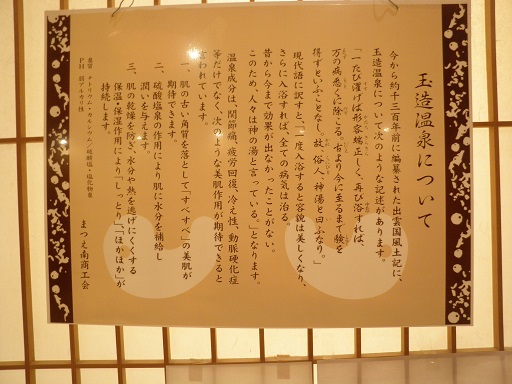 玉造温泉について
今から約千三百年前に編纂された出雲国風土記に、
玉造温泉について次のような記述があります。
「一たび濯げば形容端正しく、再び浴すれば、
万の病悉くに除こる。古より今に至るまで験を
得ずといふことなし。故、俗人、神湯と曰ふなり。」
現代語に訳すと、「一度入浴すると容貌は美しくなり、
さらに入浴すれば、全ての病気は治る。
昔から今まで効果が出なかったことがない。
このため、人々は神の湯と言っている。」となります。
温泉成分は、関節痛、疲労回復、冷え性、動脈硬化症
等だけでなく、次のような美肌作用が期待できると
言われています。
一、肌の古い角質を落として「すべすべ」の美肌が
期待できます。
二、硫酸塩泉の作用により肌に水分を補給し
潤いを与えます。
三、肌の乾燥を防ぎ、水分や熱を逃げにくくする
保温・保湿作用により「しっとり」、「ほかほか」が
持続します。
まつえ南商工会
泉質 ナトリウム・カルシウム/硫酸塩・塩化物泉
PH 弱アルカリ性